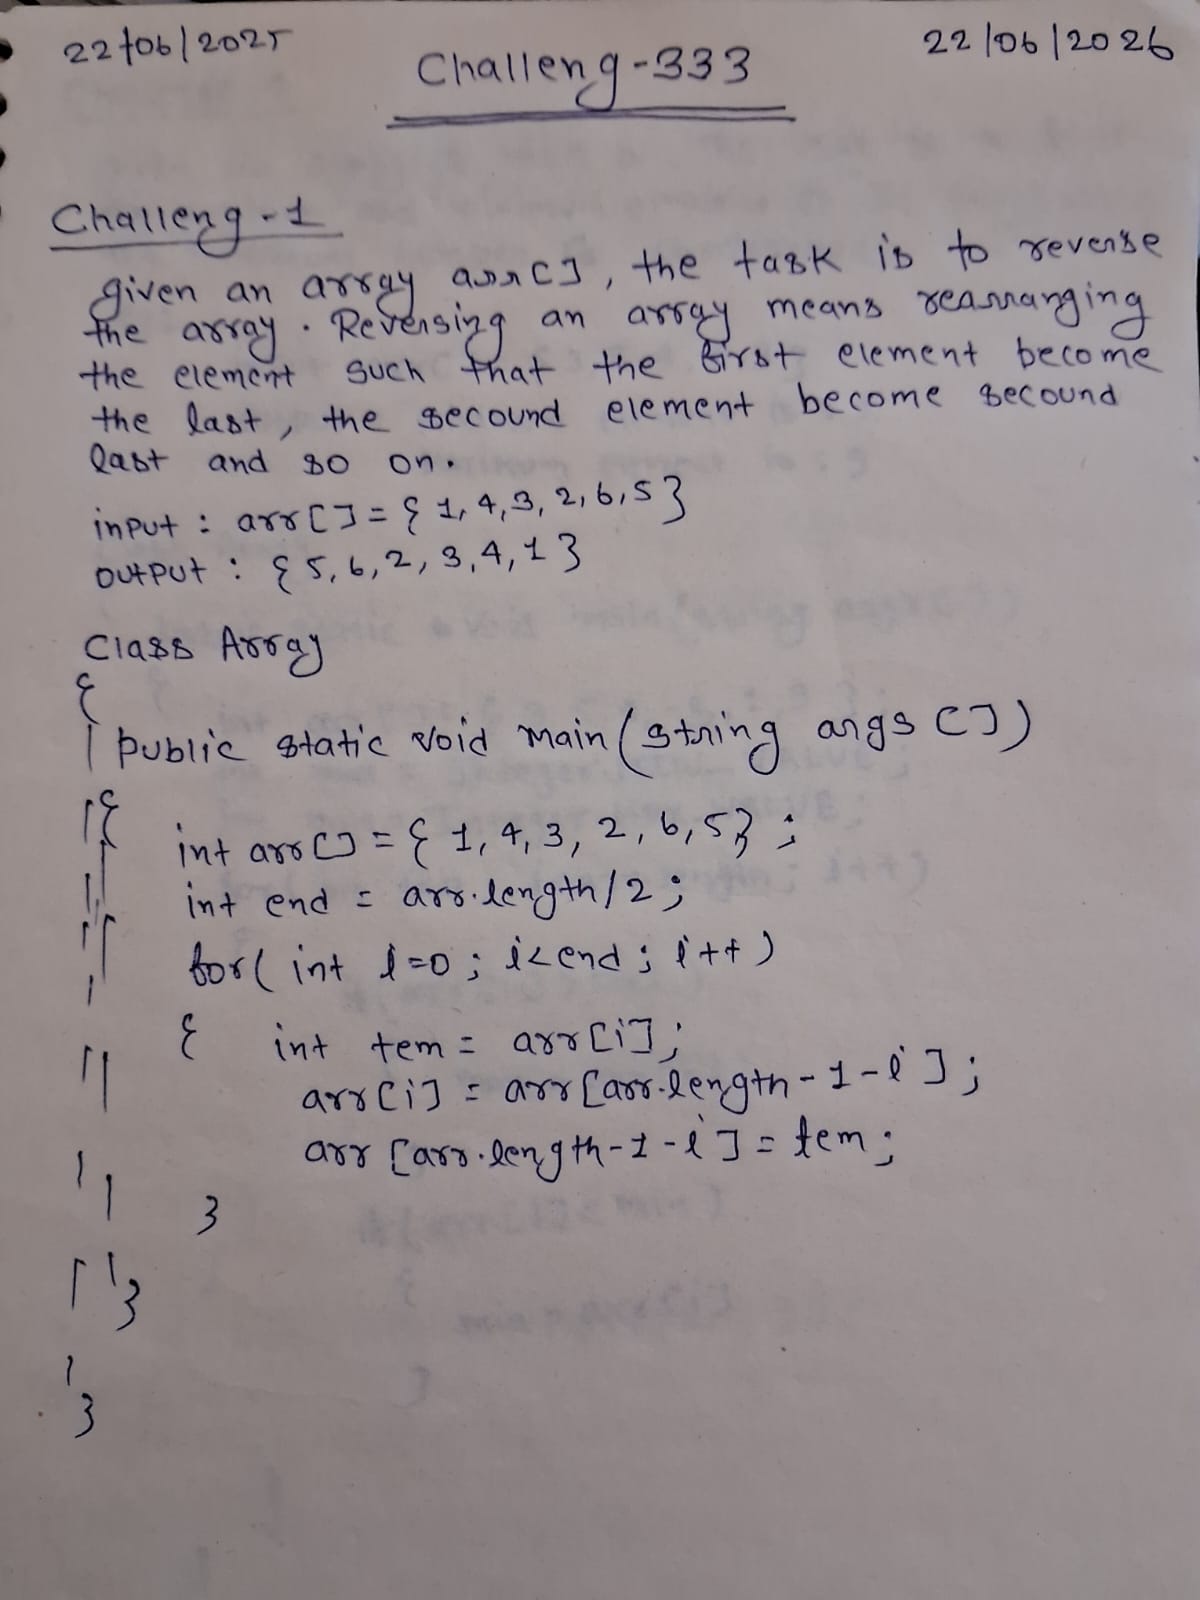 22/06/2025 22/06/2026
Challeng-333
Challeng-1
given an array arr[], the task is to reverse
the array. Reversing an array means rearranging
the element such that the first element become
the last, the secound element become secound
last and so on.
input : arr[] = {1,4,3,2,6,5}
output : {5,6,2,3,4,1}
Class Array
{
public static void main(string args[])
{
int arr[] = {1,4,3,2,6,5};
int end = arr.length/2;
for(int i=0; i<end; i++)
{ int tem = arr[i];
arr[i] = arr[arr.length-1-i];
arr[arr.length-1-i] = tem;
}
}
}